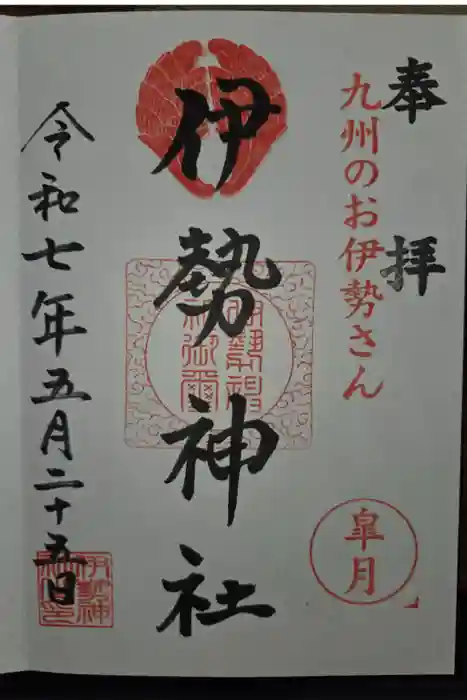 奉拝
九州のお伊勢さん
皐月
伊勢神社
令和七年五月二十五日